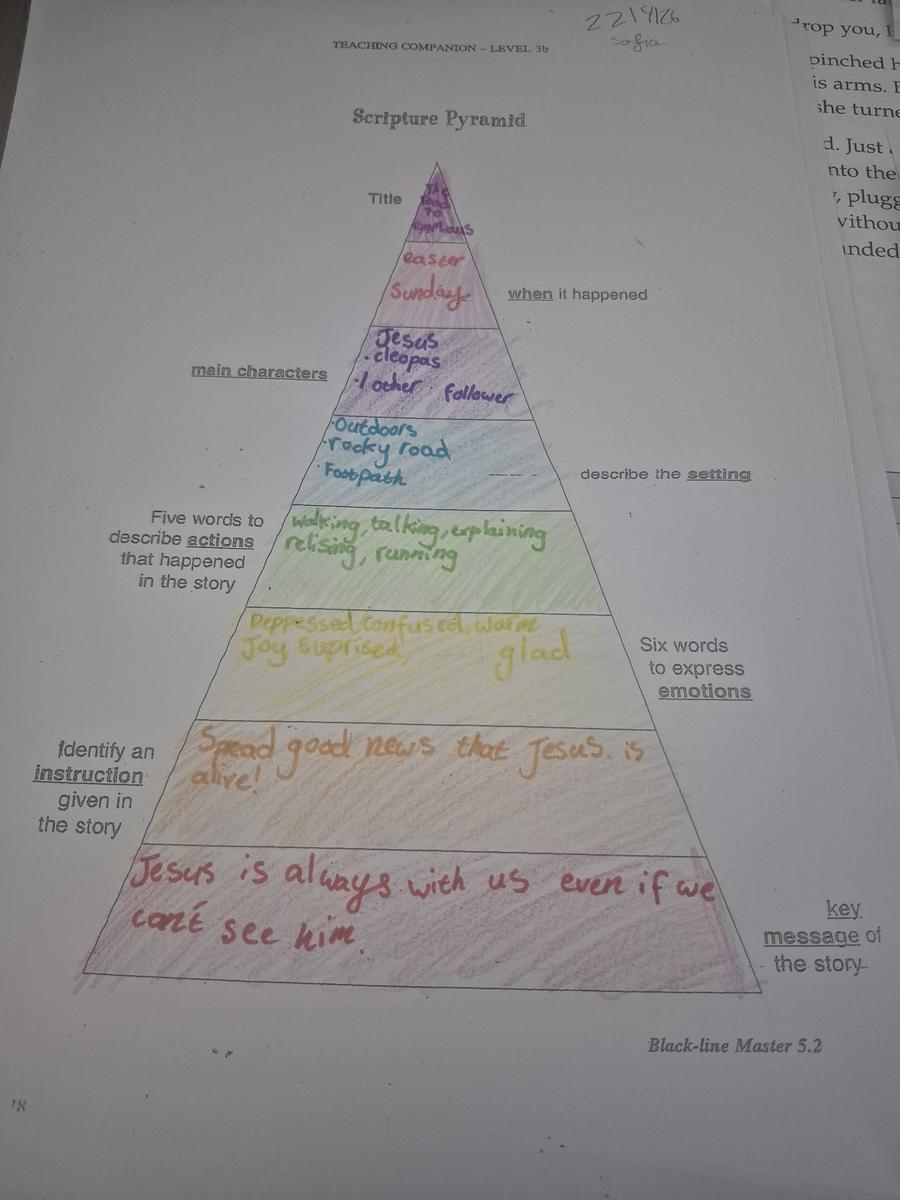 22/9/26
sofia
TEACHING COMPANION – LEVEL 3b
Scripture Pyramid
Title
The
road
To
emmaus
easter
Sunday
when it happened
main characters
Jesus
·cleopas
·1 other follower
·Outdoors
·rocky road
·Footpath
describe the setting
Five words to
describe actions
that happened
in the story
walking, talking, explaining
relising, running
Depressed, confused, warm
Joy suprised, glad
Six words
to express
emotions
Identify an
instruction
given in
the story
Spread good news that Jesus is
alive!
Jesus is always with us even if we
can't see him.
key
message of
the story
Black-line Master 5.2
rop you, I
pinched h
is arms.
she turne
d. Just
nto the
, plugg
withou
nded